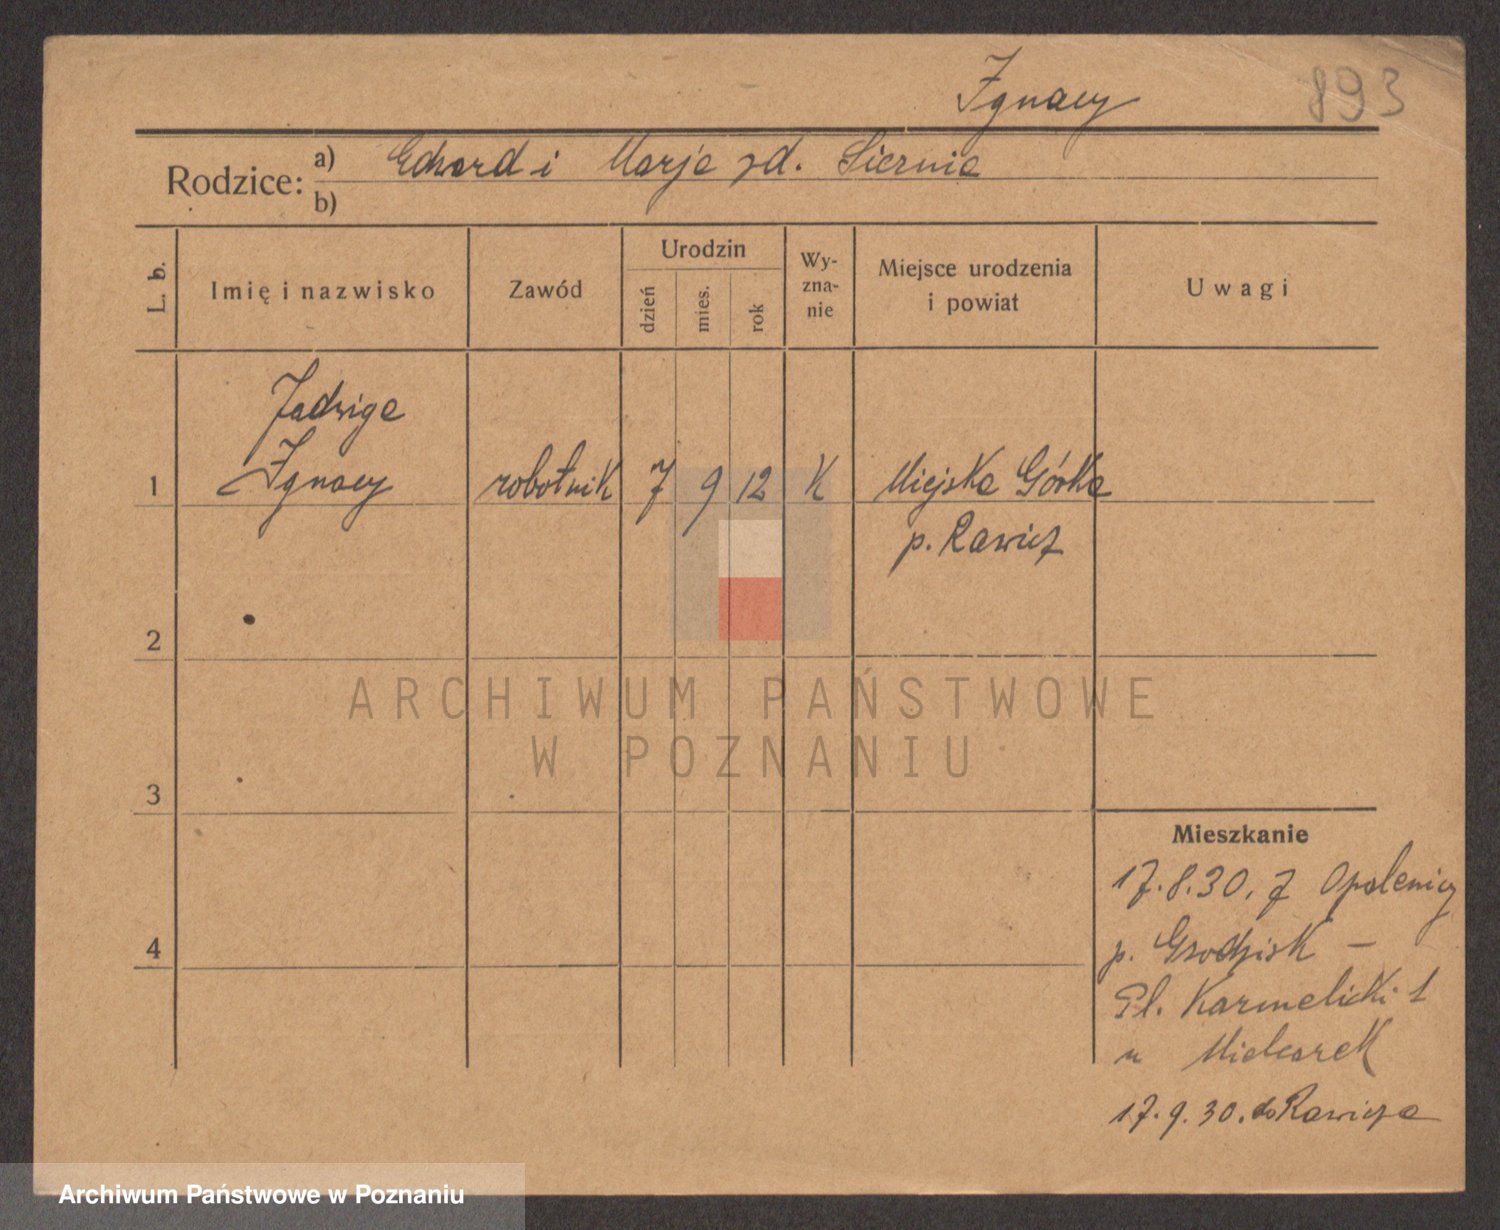 Jgnacy
893
Rodzice: a) Edward i Marja zd. Siernia
b)
L. b.
Imię i nazwisko
Zawód
Urodzin
dzień
mies.
rok
Wy-
zna-
nie
Miejsce urodzenia
i powiat
Uwagi
Jadwiga
1 Jgnacy robotnik 7 9 12 K Miejska Górka
p. Rawicz
2
ARCHIWUM PAŃSTWOWE
W POZNANIU
3
Mieszkanie
17.8.30. z Opalenicy
4 p. Grodzisk –
Pl. Karmelicki 1
u Mielcarek
17.9.30. do Rawicza
Archiwum Państwowe w Poznaniu